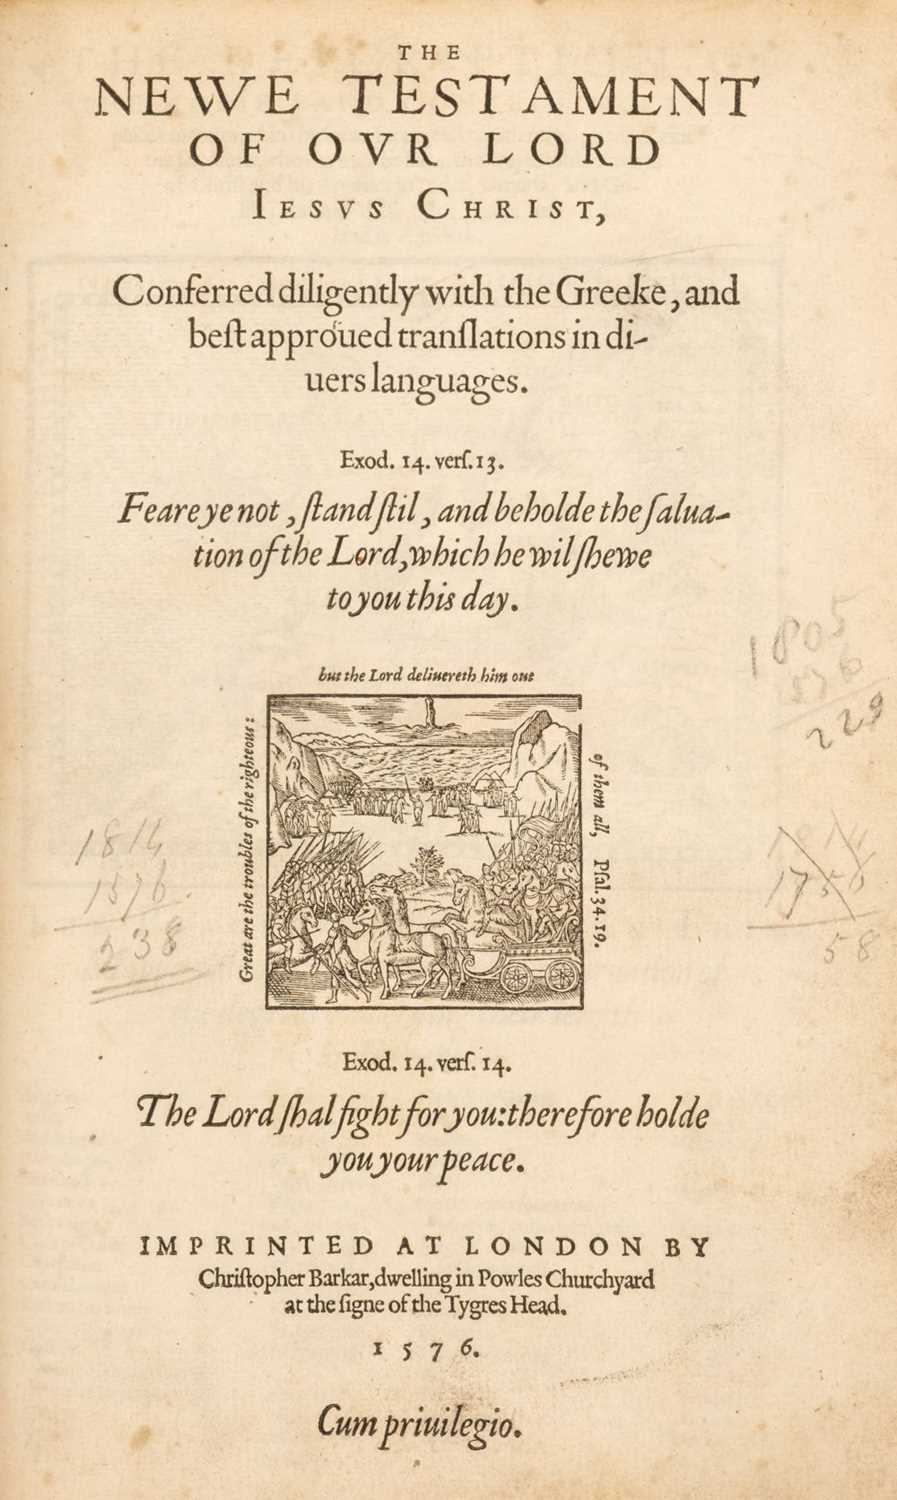 THE
NEWE TESTAMENT
OF OVR LORD
IESVS CHRIST,
Conferred diligently with the Greeke, and
beſt approued tranſlations in di-
uers languages.
Exod. 14. verſ. 13.
Feare ye not, ſtand ſtil, and beholde the ſalua-
tion of the Lord, which he wil ſhewe
to you this day.
but the Lord deliuereth him out
Great are the troubles of the righteous:
of them all, Pſal. 34. 19.
1805
229
1814
1576
238
1756
58
Exod. 14. verſ. 14.
The Lord ſhal fight for you: therefore holde
you your peace.
IMPRINTED AT LONDON BY
Chriſtopher Barkar, dwelling in Powles Churchyard
at the ſigne of the Tygres Head.
1576.
Cum priuilegio.